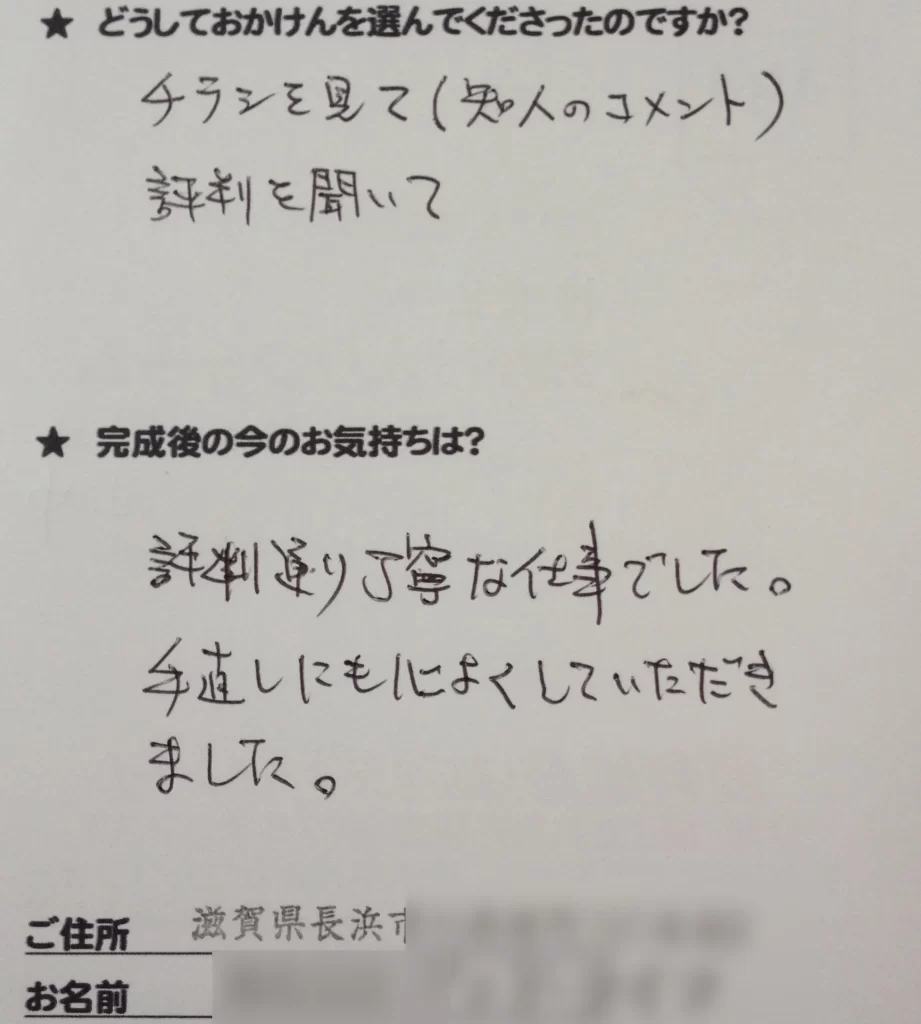 ★ どうしておかけんを選んでくださったのですか?
チラシを見て(知人のコメント)
評判を聞いて
★ 完成後の今のお気持ちは?
評判通り丁寧な仕事でした。
手直しにも心よくしていただき
ました。
ご住所 滋賀県長浜市
お名前